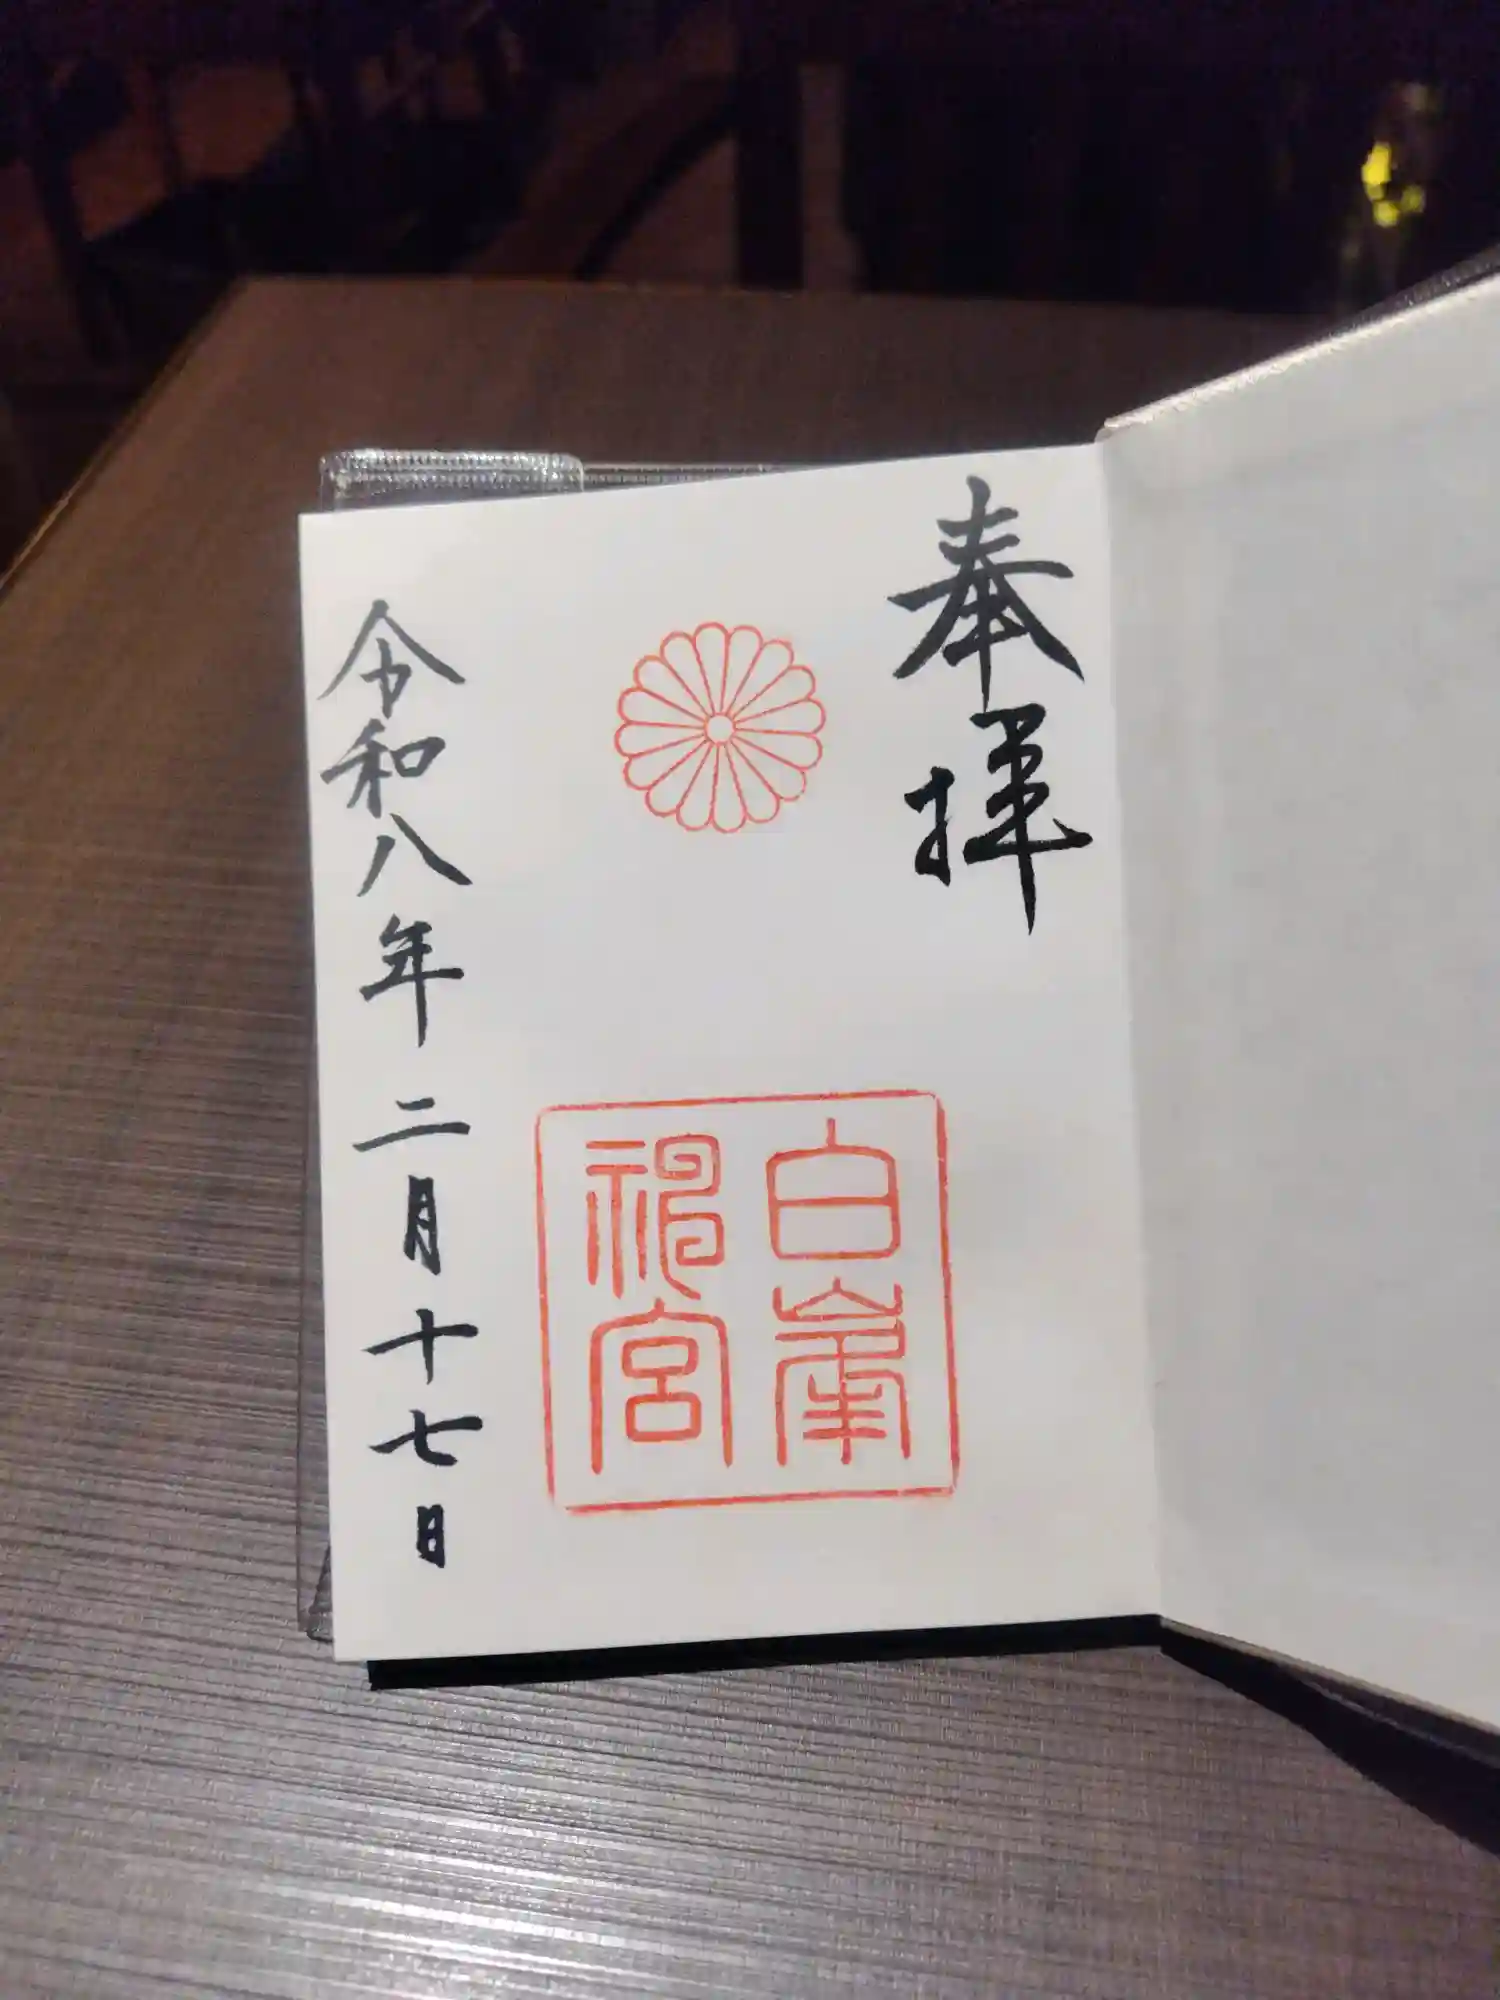 奉拝
白峯神宮
令和八年二月十七日